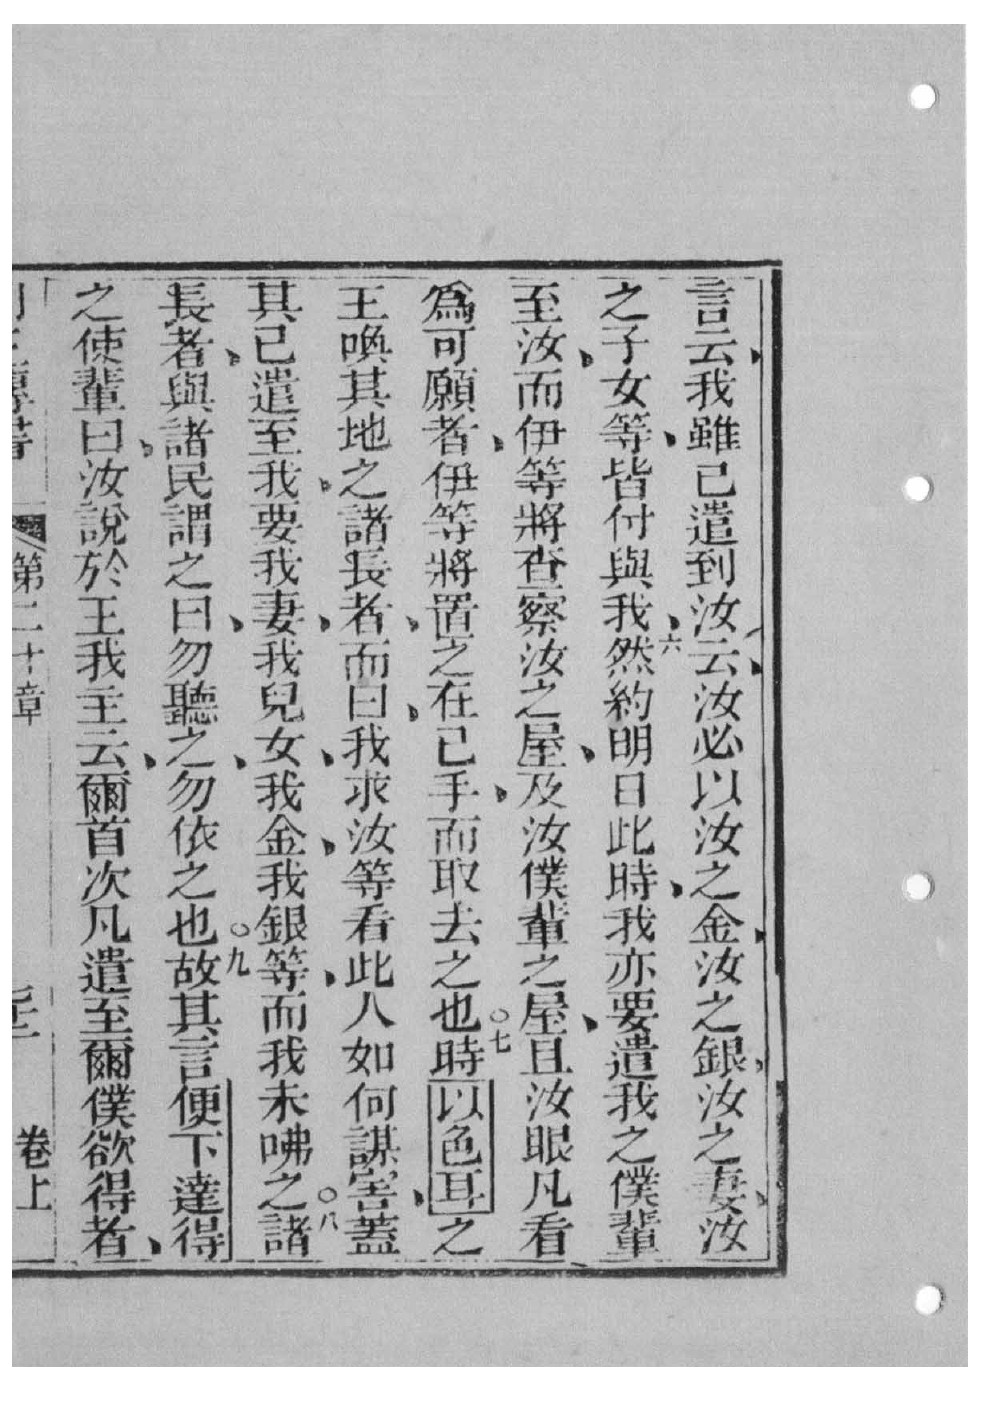 言云、我雖已遣到汝云、汝必以汝之金、汝之銀、汝之妻、汝
之子女等、皆付與我、六然約明日此時、我亦要遣我之僕輩
至汝、而伊等將查察汝之屋、及汝僕輩之屋、且汝眼凡看
爲可願者、伊等將置之在已手、而取去之也○七時以色耳之
王喚其地之諸長者、而曰、我求汝等看此人如何謀害、蓋
其已遣至我、要我妻、我兒女、我金、我銀等、而我未咈之○八諸
長者、與諸民謂之曰、勿聽之、勿依之也○九故其言便下達得
之使輩曰、汝說於王我主云、爾首次凡遣至爾僕欲得者、
第二十章 卷上